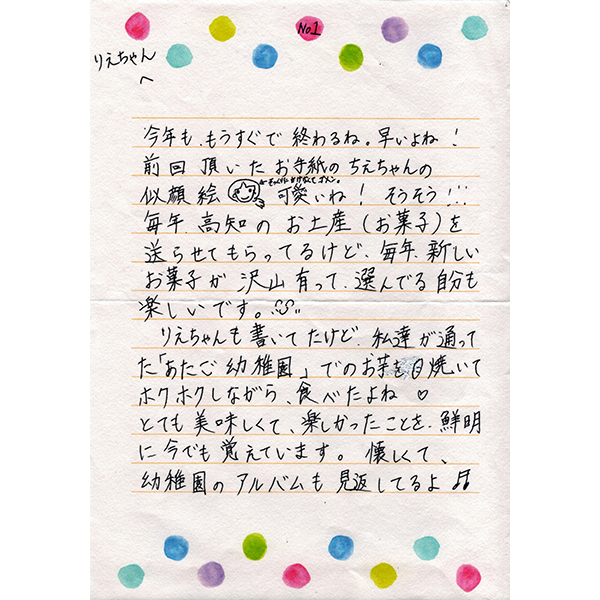 No1
りえちゃん
へ
今年も、もうすぐで 終わるね。早いよね！
前回 頂いた お手紙の ちえちゃんの
似顔絵 可愛いね！ そうそう!!!
毎年、高知の お土産(お菓子)を
送らせてもらってるけど、毎年、新しい
お菓子が 沢山 有って、選んでる 自分も
楽しいです。
りえちゃんも 書いてたけど、私達が通って
た「あたご 幼稚園」での お芋も 焼いて
ホクホクしながら、食べたよね ♡
とても 美味しくて、楽しかったことを、鮮明
に 今でも 覚えています。 懐しくて、
幼稚園の アルバムも 見返してるよ ♫